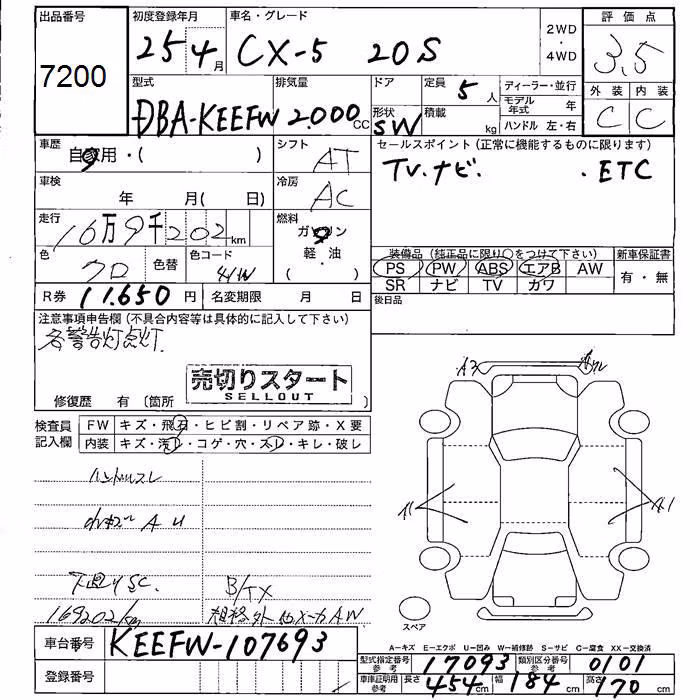 出品番号
7200
初度登録年月
25 4 月
車名・グレード
CX-5 20S
2WD
・
4WD
評価点
3.5
外装 内装
C C
型式
DBA-KEEFW
排気量
2.000 CC
ドア
形状
SW
定員
5 人
積載
kg
ディーラー・並行
モデル年式 年
ハンドル 左・右
車歴
自家用・( )
シフト
AT
セールスポイント (正常に機能するものに限ります)
TV.ナビ. . ETC
車検
年 月( 日)
冷房
AC
走行
16万9千202 km
燃料
ガソリン
軽・油
( )
色
クロ
色替
色コード
41W
装備品 (純正品に限り○をつけて下さい)
PS PW ABS エアB AW
SR ナビ TV カワ
新車保証書
有・無
R券 11.650 円
名変期限 月 日
後日品
注意事項申告欄 (不具合内容等は具体的に記入して下さい)
各警告灯点灯
売切りスタート
SELLOUT
修復歴 有 〔箇所 〕
検査員
記入欄
FW キズ・飛石・ヒビ割・リペア跡・X要
内装 キズ・汚レ・コゲ・穴・スレ・キレ・破レ
ハンドルスレ
A U
下廻りSC.
B/TX
169202/km
規格外 他メーカAW
車台番号 KEEFW-107693
登録番号
A1 A1
スペア
A－キズ E－エクボ U－凹み W－補修跡 S－サビ C－腐食 XX－交換済
型式指定番号
参考
17093
類別区分番号
参考
0101
車庫証明用
参考
長さ 454 cm 幅 184 cm 高さ 170 cm